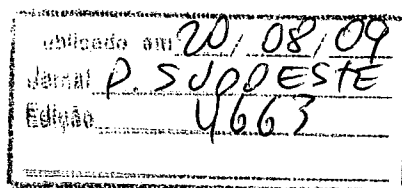 ublicado em 20/08/09
Jornal P. SUDOESTE
Edição 4663